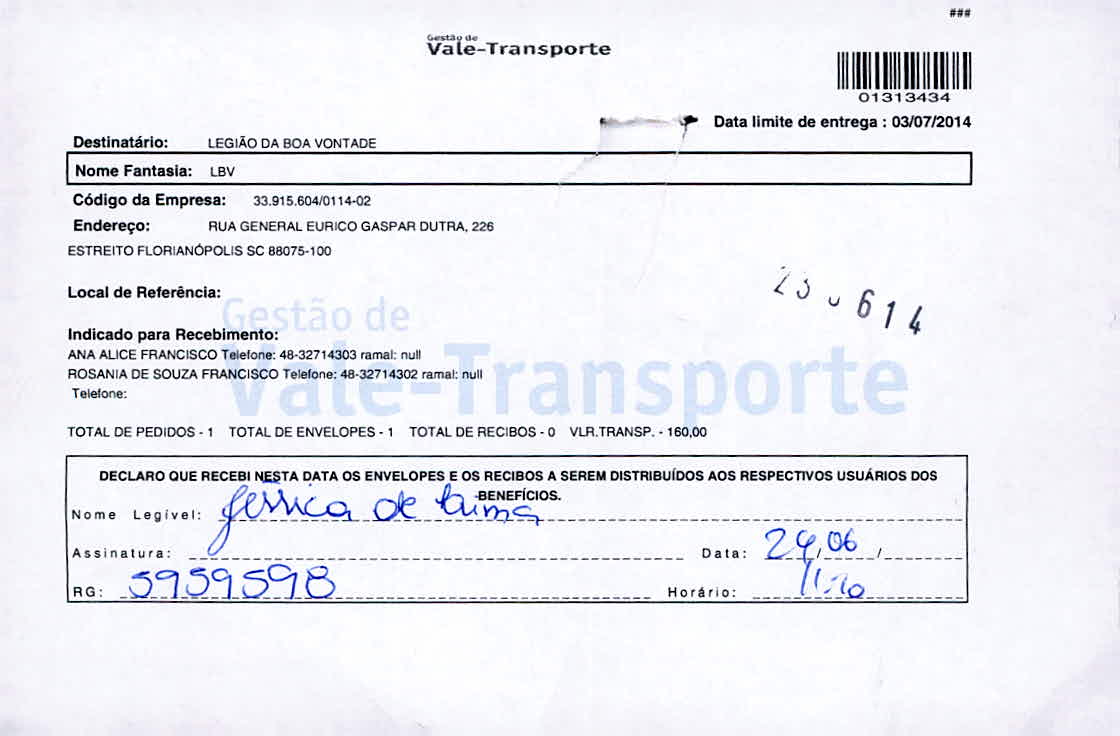 ###
Gestão de
Vale-Transporte
01313434
Data limite de entrega : 03/07/2014
Destinatário: LEGIÃO DA BOA VONTADE
Nome Fantasia: LBV
Código da Empresa: 33.915.604/0114-02
Endereço: RUA GENERAL EURICO GASPAR DUTRA, 226
ESTREITO FLORIANÓPOLIS SC 88075-100
Local de Referência:
Gestão de
Vale-Transporte
Indicado para Recebimento:
ANA ALICE FRANCISCO Telefone: 48-32714303 ramal: null
ROSANIA DE SOUZA FRANCISCO Telefone: 48-32714302 ramal: null
Telefone:
TOTAL DE PEDIDOS - 1 TOTAL DE ENVELOPES - 1 TOTAL DE RECIBOS - 0 VLR.TRANSP. - 160,00
DECLARO QUE RECEBI NESTA DATA OS ENVELOPES E OS RECIBOS A SEREM DISTRIBUÍDOS AOS RESPECTIVOS USUÁRIOS DOS
BENEFÍCIOS.
Nome Legível: Jéssica de
Assinatura: Data: 24/06/
RG: 5959598 Horário: 11:20